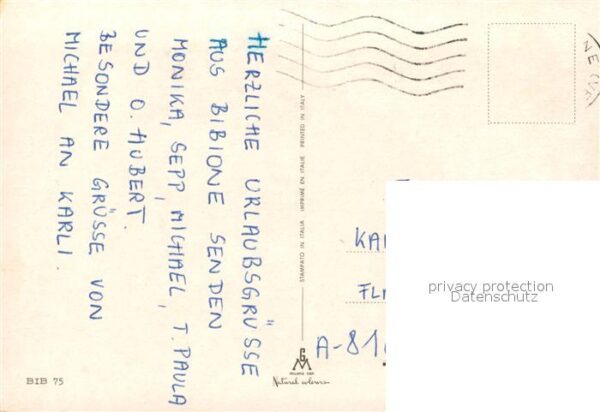 HERZLICHE URLAUBSGRÜSSE
AUS BIBIONE SENDEN
MONIKA, SEPP, MICHAEL, T. PAULA
UND O. HUBERT.
BESONDERE GRÜSSE VON
MICHAEL AN KARLI.
STAMPATO IN ITALIA IMPRIMÉ EN ITALIE PRINTED IN ITALY
KA
FL
A-81
privacy protection
Datenschutz
BIB 75
Natural colours